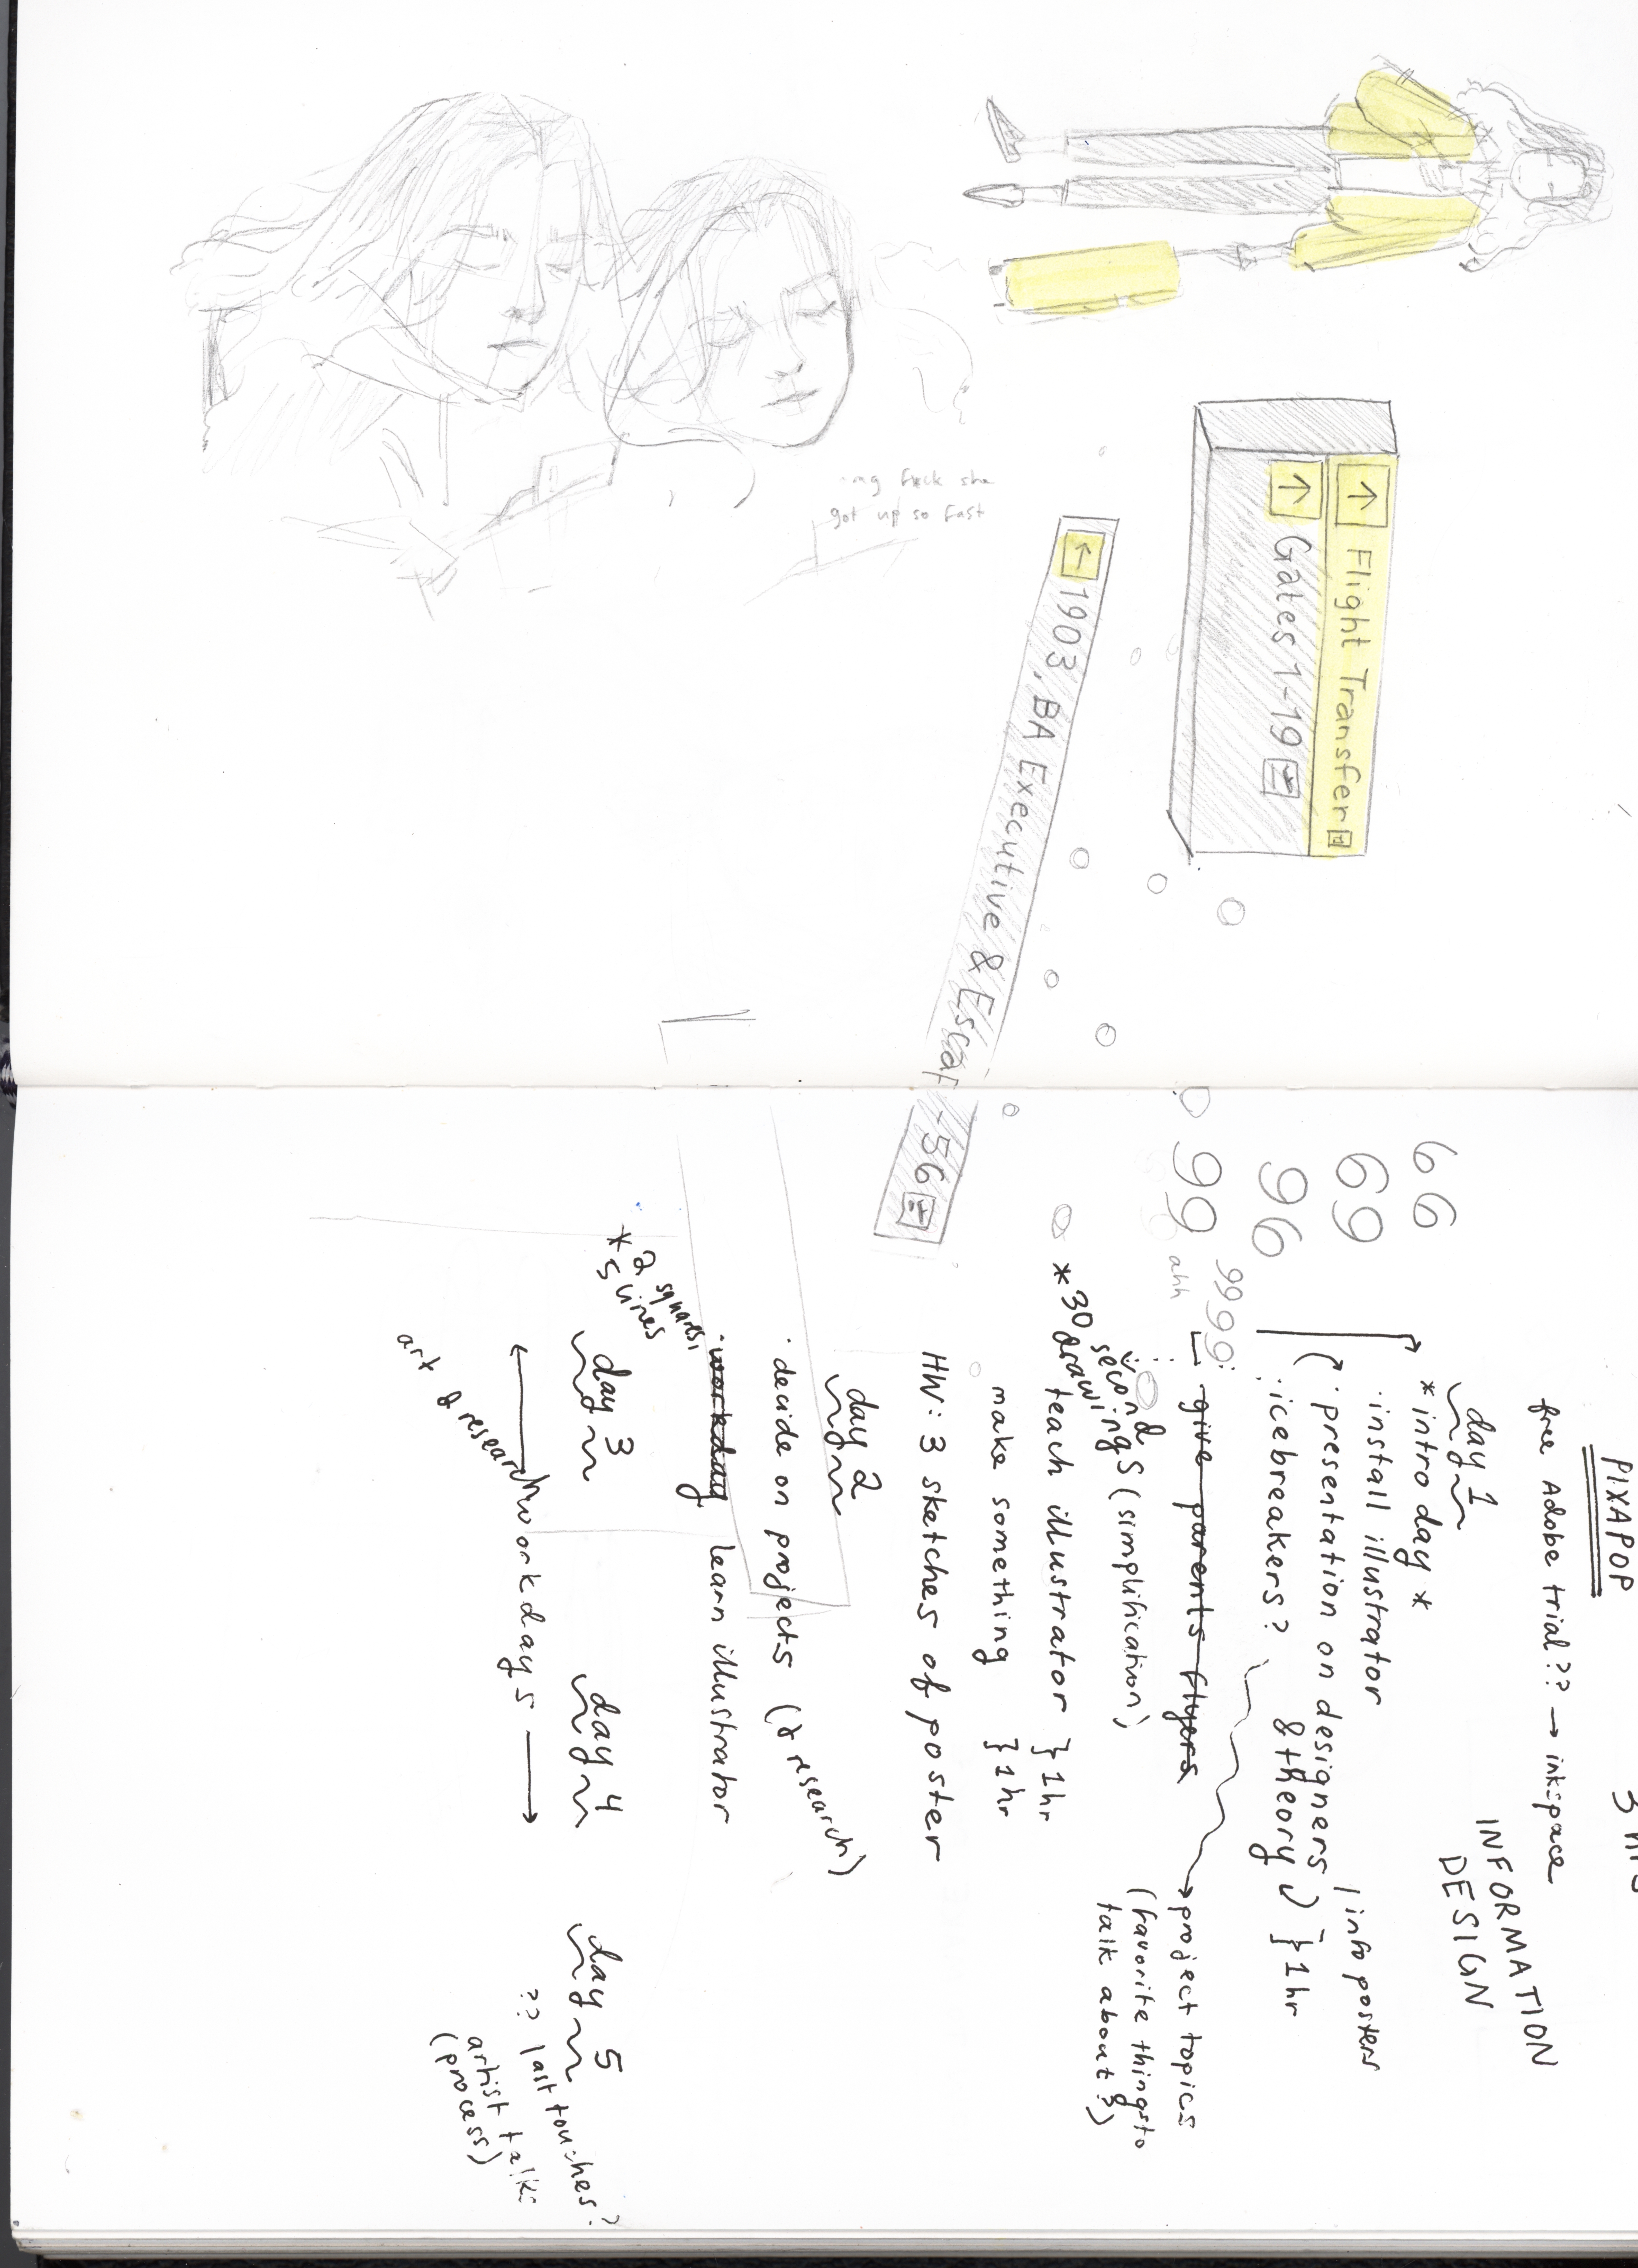 ↑ Flight Transfer
↑ Gates 1-19
← 1903, BA Executive & Escar
- 56
fuck she
got up so fast
PIXAPOP
free Adobe trial?? → inkspace
INFORMATION
DESIGN
day 1
* intro day *
· install illustrator
· presentation on designers / info posters
· icebreakers? & theory } 1 hr
give parents flyers
→ project topics
(favorite things to
talk about?)
* 30 second
drawings (simplification)
teach illustrator } 1 hr
make something } 1 hr
HW: 3 sketches of poster
66
69
96
99
9999
ahh
day 2
· decide on projects (& research)
· workday learn illustrator
* 2 squares,
5 lines
day 3
day 4
day 5
← workdays →
art & research
?? last touches?
artist talks
(process)